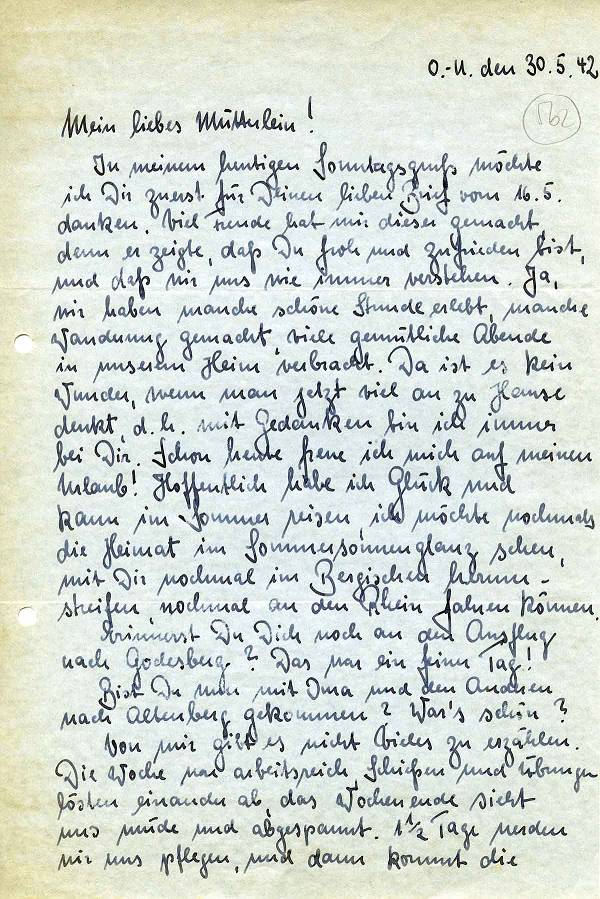 O.-U. den 30.5.42
Mein liebes Mütterlein!
In meinem heutigen Sonntagsgruß möchte
ich Dir zuerst für Deinen lieben Brief vom 16.5.
danken. Viel Freude hat mir dieser gemacht,
denn er zeigte, daß Du froh und zufrieden bist,
und daß wir uns wie immer verstehen. Ja,
wir haben manche schöne Stunde erlebt, manche
Wanderung gemacht, viele gemütliche Abende
in unserem Heim verbracht. Da ist es kein
Wunder, wenn man jetzt viel an zu Hause
denkt, d.h. mit Gedanken bin ich immer
bei Dir. Schon heute freue ich mich auf meinen
Urlaub! Hoffentlich habe ich Glück und
kann im Sommer reisen, ich möchte nochmals
die Heimat im Sommersonnenglanz sehen,
mit Dir nochmal im Bergischen herum-
streifen, nochmal an den Rhein fahren können.
Erinnerst Du Dich noch an den Ausflug
nach Godesberg? Das war ein feiner Tag!
Bist Du nun mit Oma und den Anderen
nach Altenberg gekommen? War's schön?
Von mir gibt es nicht Vieles zu erzählen.
Die Woche war arbeitsreich, Schießen und Übungen
lösten einander ab, das Wochenende sieht
uns müde und abgespannt. 1 1/2 Tage werden
wir uns pflegen, und dann kommt die